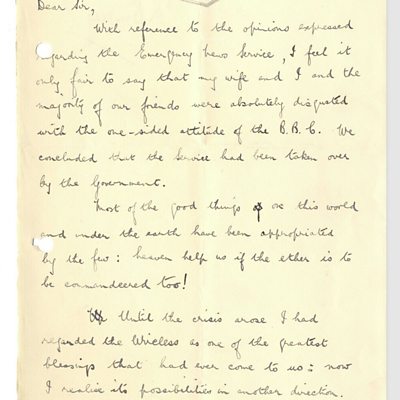 Dear Sir,
With reference to the opinions expressed
regarding the Emergency News Service, I feel it
only fair to say that my wife and I and the
majority of our friends were absolutely disgusted
with the one-sided attitude of the B.B.C. We
concluded that the service had been taken over
by the Government.
Most of the good things on this world
and under the earth have been appropriated
by the few: heaven help us if the ether is to
be commandeered too!
Until the crisis arose I had
regarded the Wireless as one of the greatest
blessings that had ever come to us: now
I realise its possibilities in another direction.